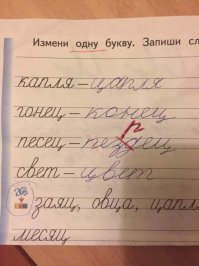 Измени одну букву. Запиши сл
капля – цапля
гонец – конец
песец – пездец
свет – цвет
заяц, овца, цапл
месяц